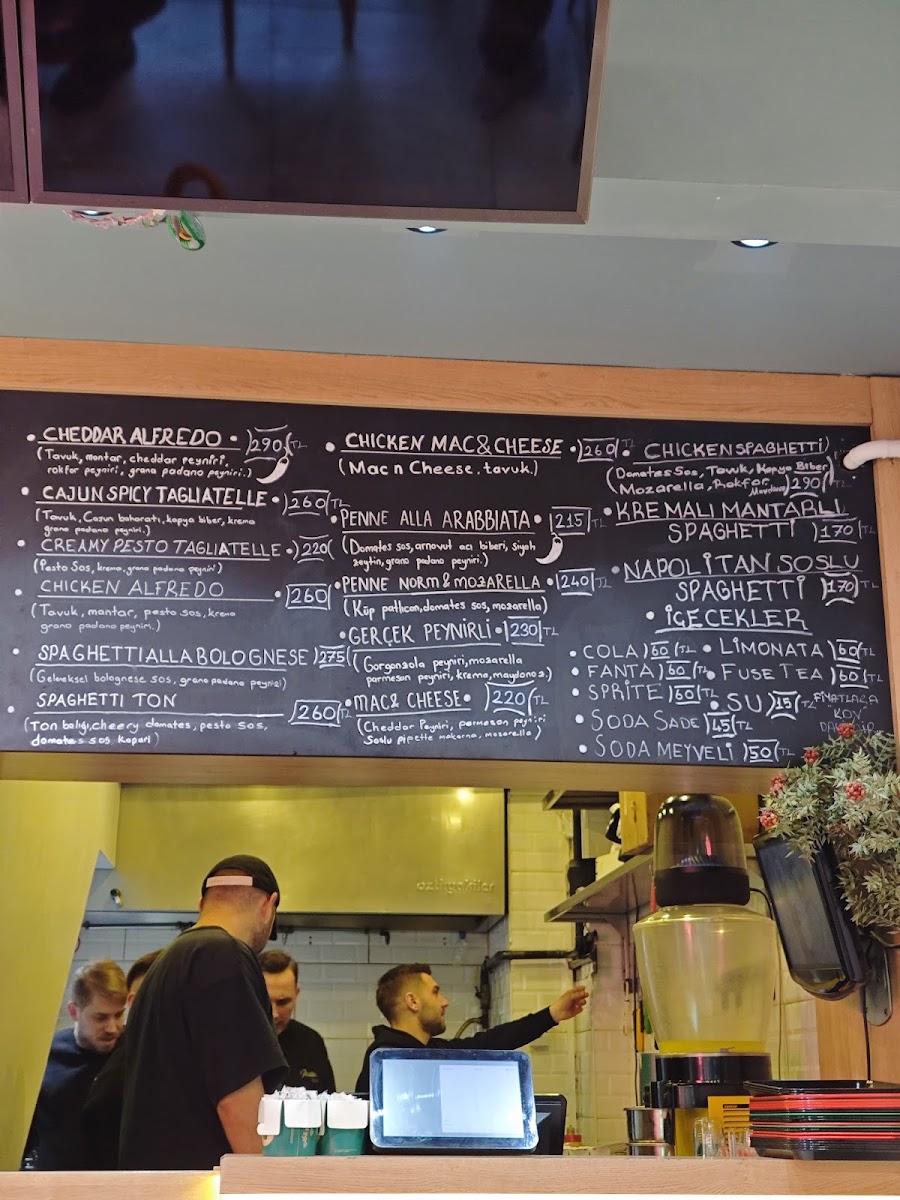 • CHEDDAR ALFREDO • 290 TL
(Tavuk, mantar, cheddar peyniri,
rokfor peyniri, grana padano peyniri.)
• CAJUN SPICY TAGLIATELLE • 260 TL
(Tavuk, Cajun baharatı, kapya biber, krema
grana padano peyniri.)
• CREAMY PESTO TAGLIATELLE • 220
(Pesto Sos, krema, grana padano peyniri)
• CHICKEN ALFREDO 260
(Tavuk, mantar, pesto sos, krema
grana padano peynirı.)
• SPAGHETTI ALLA BOLOGNESE 275
(Geleneksel bolognese sos, grana padano peyniri)
• SPAGHETTI TON 260 TL
(Ton balığı, cheery domates, pesto sos,
domates sos, kapari)
• CHICKEN MAC & CHEESE • 260 TL
(Mac n Cheese, tavuk.)
• PENNE ALLA ARABBIATA • 215 TL
(Domates sos, arnavut acı biberi, siyah
zeytin, grana padano peyniri.)
• PENNE NORM & MOZARELLA • 240 TL
(Küp patlıcan, domates sos, mozarella)
• GERÇEK PEYNİRLİ • 230 TL
(Gorgonzola peyniri, mozarella
parmesan peyniri, krema, maydanoz.)
• MAC & CHEESE • 220 TL
(Cheddar Peyniri, parmesan peyniri
Soslu pipette makarna, mozarella)
• CHICKEN SPAGHETTI
(Domates Sos, Tavuk, Kapya Biber
Mozarella, Rokfor, Maydanoz) 290 TL
• KREMALI MANTARLI
SPAGHETTI 170 TL
• NAPOLİTAN SOSLU
SPAGHETTI 170 TL
• İÇECEKLER
• COLA 60 TL
• FANTA 60 TL
• SPRİTE 60 TL
• SODA SADE 45 TL
• SODA MEYVELİ 50 TL
• LİMONATA 60 TL
• FUSE TEA 60 TL
• SU 15 TL
FİYATLARA
KDV
öztiryakiler